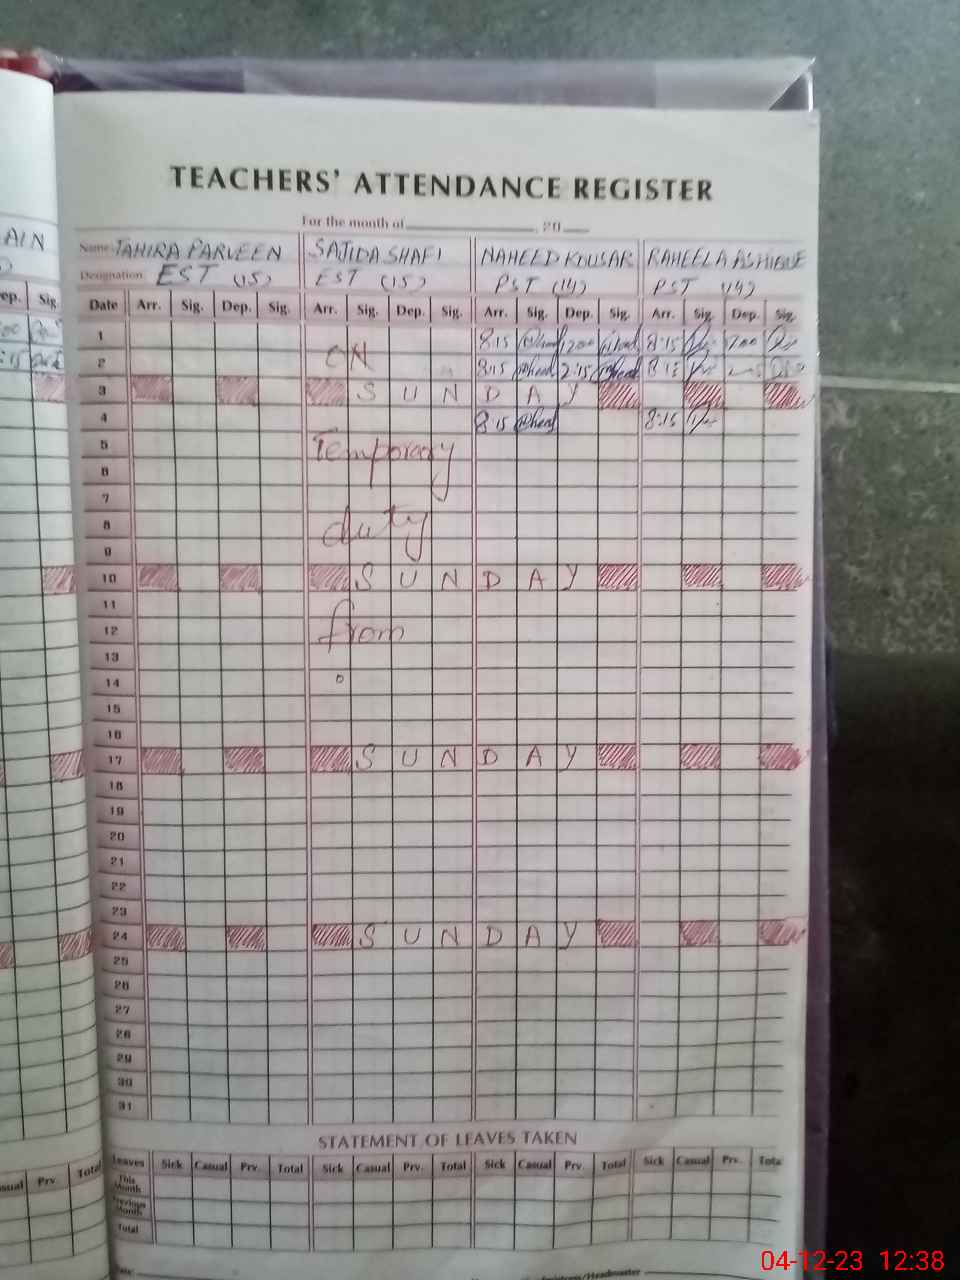 TEACHERS' ATTENDANCE REGISTER
For the month of , 20
AIN
Name: TAHIRA PARVEEN SAJIDA SHAFI NAHEED KOUSAR RAHEELA ASHIQUE
Designation: EST (15) EST (15) PST (14) PST (14)
ep. Sig. Date Arr. Sig. Dep. Sig. Arr. Sig. Dep. Sig. Arr. Sig. Dep. Sig. Arr. Sig. Dep. Sig.
1 8:15 8:15
2 ON 8:15 2:15 8:15
3 S U N D A Y
4 8:15 8:15
5 Temporary
6
7
8 duty
9
10 S U N D A Y
11
12 from
13
14
15
16
17 S U N D A Y
18
19
20
21
22
23
24 S U N D A Y
25
26
27
28
29
30
31
STATEMENT OF LEAVES TAKEN
sual Prv. Total Leaves Sick Casual Prv. Total Sick Casual Prv. Total Sick Casual Prv. Total Sick Casual Prv. Tota
This Month
Previous Month
Total
Date:
/Headmaster
04-12-23 12:38